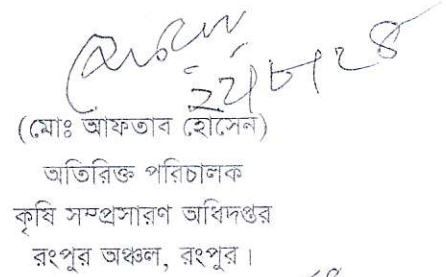 ২৭/৮/২৪
(মোঃ আফতাব হোসেন)
অতিরিক্ত পরিচালক
কৃষি সম্প্রসারণ অধিদপ্তর
রংপুর অঞ্চল, রংপুর।